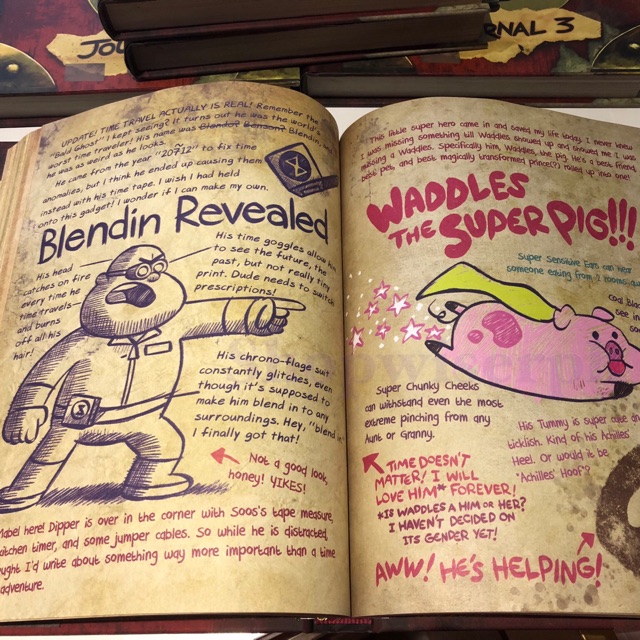 JOU
RNAL 3
UPDATE! TIME TRAVEL ACTUALLY IS REAL! Remember the
"Bald Ghost" I kept seeing? It turns out he was the world's
worst time traveler! His name was Blando? Benson? Blendin, and
he was as weird as he looks.
He came from the year "207̃12" to fix time
anomalies, but I think he ended up causing them
instead with his time tape. I wish I had held
onto this gadget! I wonder if I can make my own.
Blendin Revealed
His head
catches on fire
every time he
time travels—
and burns
off all his
hair!
His time goggles allow him
to see the future, the
past, but not really tiny
print. Dude needs to switch
prescriptions!
His chrono-flage suit
constantly glitches, even
though it's supposed to
make him blend in to any
surroundings. Hey, "blend in"
I finally got that!
Not a good look,
honey! YIKES!
Mabel here! Dipper is over in the corner with Soos's tape measure,
kitchen timer, and some jumper cables. So while he is distracted,
thought I'd write about something way more important than a time
adventure.
This little super hero came in and saved my life today. I never knew
I was missing something till Waddles showed up and showed me I was
missing a Waddles. Specifically him, Waddles, the pig. He's a best friend,
best pet, and best magically transformed prince(?) rolled up into one!
WADDLES
THE SUPER PIG!!!
Super Sensitive Ears can hear
someone eating from 2 rooms
coal
see in
Super Chunky Cheeks
can withstand even the most
extreme pinching from any
Aunt or Granny.
His Tummy is super cute and
ticklish. Kind of his Achilles'
Heel. Or would it be
"Achilles' Hoof"?
TIME DOESN'T
MATTER! I WILL
LOVE HIM* FOREVER!
*IS WADDLES A HIM OR HER?
I HAVEN'T DECIDED ON
ITS GENDER YET!
AWW! HE'S HELPING!